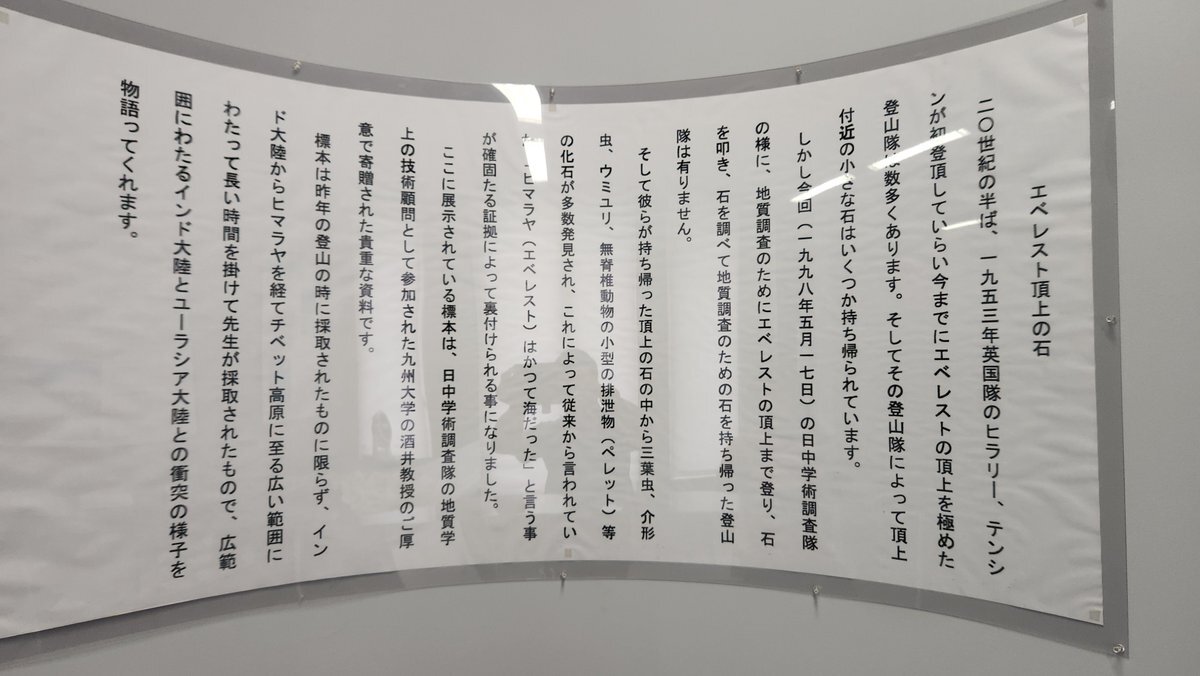 エベレスト頂上の石
二〇世紀の半ば、一九五三年英国隊のヒラリー、テンシ
ンが初登頂していらい今までにエベレストの頂上を極めた
登山隊は数多くあります。そしてその登山隊によって頂上
付近の小さな石はいくつか持ち帰られています。
しかし今回（一九九八年五月一七日）の日中学術調査隊
の様に、地質調査のためにエベレストの頂上まで登り、石
を叩き、石を調べて地質調査のための石を持ち帰った登山
隊は有りません。
そして彼らが持ち帰った頂上の石の中から三葉虫、介形
虫、ウミユリ、無脊椎動物の小型の排泄物（ペレット）等
の化石が多数発見され、これによって従来から言われてい
た「ヒマラヤ（エベレスト）はかつて海だった」と言う事
が確固たる証拠によって裏付けられる事になりました。
ここに展示されている標本は、日中学術調査隊の地質学
上の技術顧問として参加された九州大学の酒井教授のご厚
意で寄贈された貴重な資料です。
標本は昨年の登山の時に採取されたものに限らず、イン
ド大陸からヒマラヤを経てチベット高原に至る広い範囲に
わたって長い時間を掛けて先生が採取されたもので、広範
囲にわたるインド大陸とユーラシア大陸との衝突の様子を
物語ってくれます。